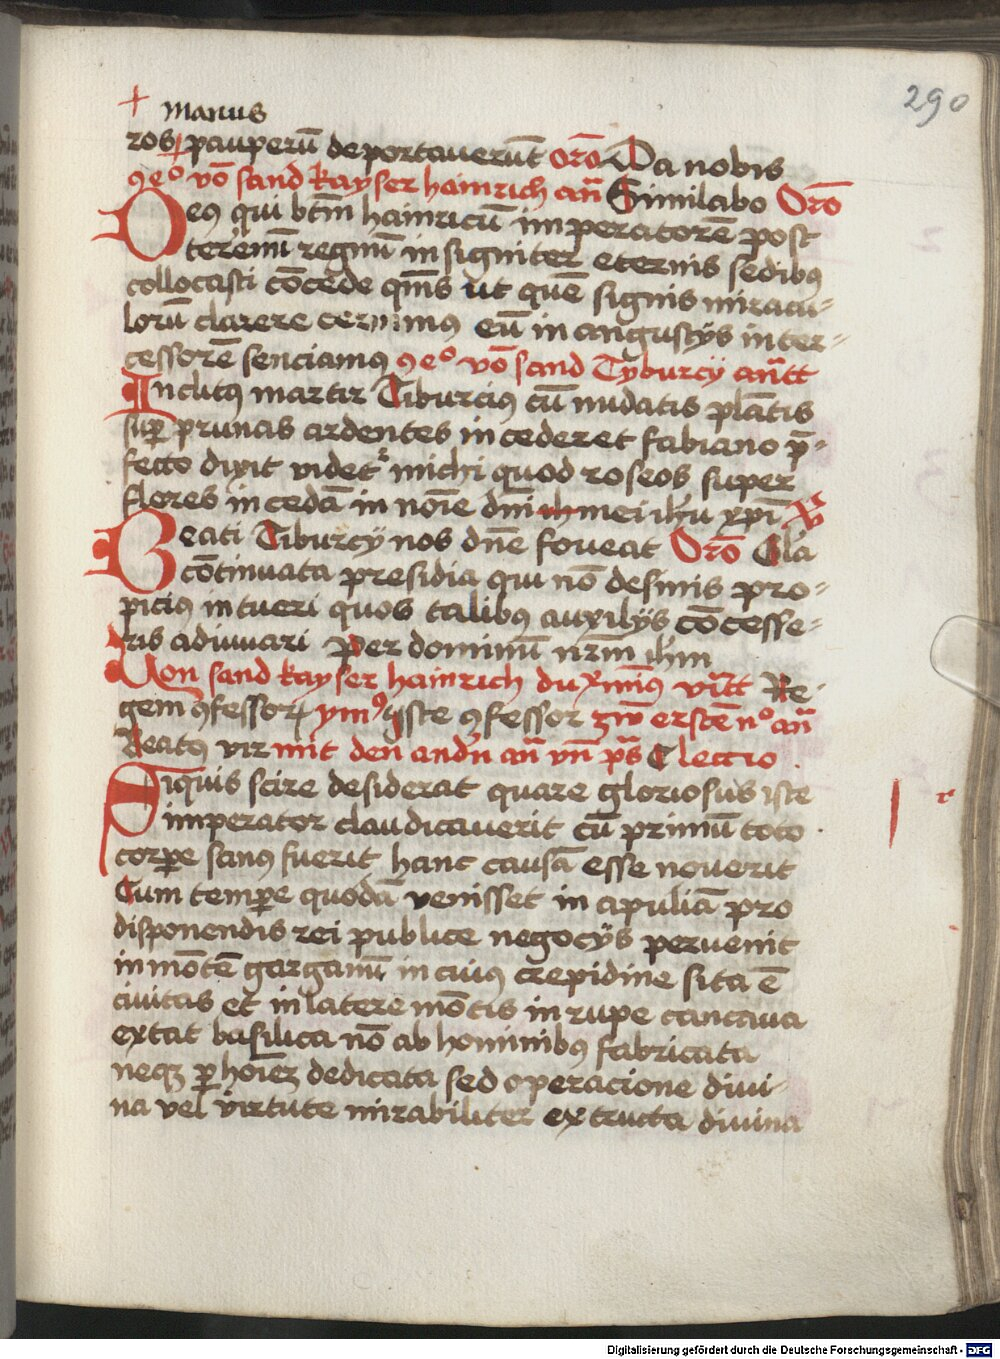 290
+ manus
ros pauperū deportauerūt orō Da nobis
ꝯeº vō sand kayser hainrich an̄ Similabo Orō
Deꝰ qui btm̄ hainricū imperatorē post
terēnū regnū insigniter eternis sedibꝰ
collocasti cōcede qm̄s ut quē signis miracu-
lorū clarere cernimꝰ eū in angustijs inter-
cessorē senciamꝰ ꝯeº vō sand Tyburcy
Inclitꝰ martir Tiburciꝰ cū nudatis plātis
suꝑ prunas ardentes incederet fabiano p̄-
fecto dixit videt michi quod roseos super
flores incedā in nōīe dn̄i mei ih̄u xp̄i
Beati Tiburcÿ nos dn̄e foueat Orō
cōtinuata presidia qui nō desinis pro-
piciꝰ intueri quos talibꝰ auxilÿs cōcesse-
ris adiuuari Per dominū nr̄m ih̄m
Von sand kayser hainrich Re-
gem ꝯfessorꝝ ymꝰ Iste ꝯfessor zw erstē nº an̄
Beatꝰ vir mit den andn̄ an̄ vn̄ pˢ Lectio
Siquis scire desiderat quare gloriosus iste
imperator claudicauerit cū primū toto
corꝑe sanꝰ fuerit hanc causā esse nouerit
Cum temꝑe quodā venisset in apuliā pro
disponendis rei publice negocÿs peruenit
in mōtē garganū in cuiꝰ crepidine sita ē
ciuitas et in latere mōtis in rupe concaua
extat basilica nō ab hominibꝰ fabricata
neqꝫ ꝑ hoīeꝫ dedicata sed operacione diui-
na vel virtute mirabiliter extructa diuina
Digitalisierung gefördert durch die Deutsche Forschungsgemeinschaft - DFG